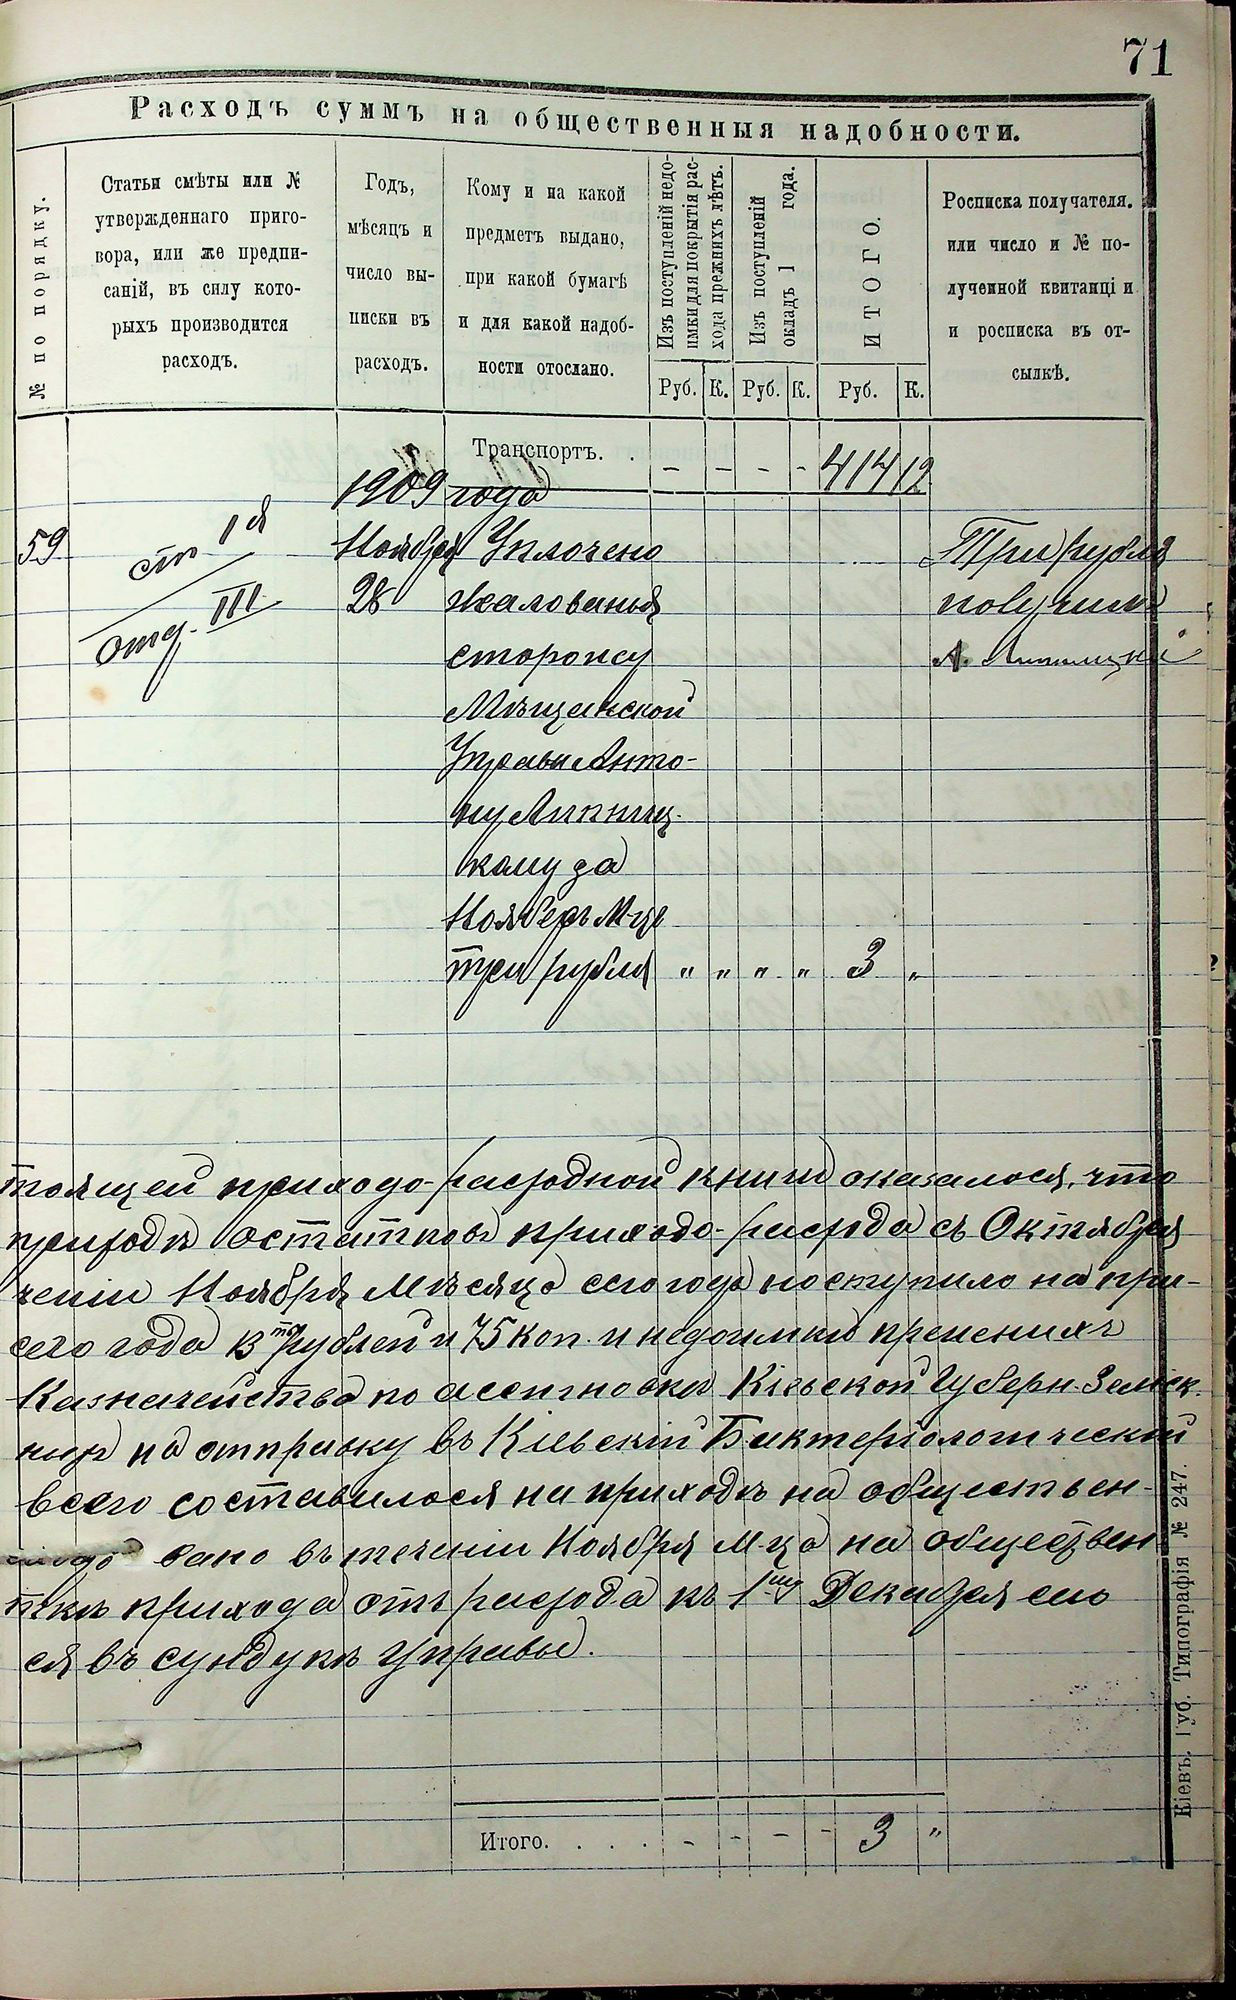 71
Расходъ суммъ на общественныя надобности.
№ по порядку.
Статьи смѣты или №
утвержденнаго приго-
вора, или же предпи-
саній, въ силу кото-
рыхъ производится
расходъ.
Годъ,
мѣсяцъ и
число вы-
писки въ
расходъ.
Кому и на какой
предметъ выдано,
при какой бумагѣ
и для какой надоб-
ности отослано.
Изъ поступленій недо-
имки для покрытія рас-
хода прежнихъ лѣтъ.
Изъ поступленій
окладъ 1 года.
ИТОГО.
Росписка получателя.
или число и № по-
лученной квитанціи
и росписка въ от-
сылкѣ.
Руб. К. Руб. К. Руб. К.
Транспортъ. . - - - - 414 12
1909 года
59 ст 1я Ноября Уплочено Три рубля
отд. III 28 жалованья получилъ
сторожу А. Липницкій
Мѣщанской
Управы Анто-
ну Липниц-
кому за
Ноябрь М-цъ
три рубля „ „ „ „ 3 „
тоящей приходо-расходной книги оказалося, что
приходѣ остатковъ приходо-расхода съ Октября
ченіи Ноября Мѣсяца сего года поступило на при-
сего года 13 рублей и 75 коп. и недоимки прежнихъ
Казначейства по ассигновки Кіевской Губерн. Земск.
на отправку въ Кіевскій Бактеріологическій
всего составилося на приходѣ на обществен-
дано въ теченіи Ноября М-ца на обществен
ткѣ прихода отъ расхода къ 1му Декабря сего
ся въ сундукѣ Управы.
Итого. . . . - - - - 3 „
Кіевъ. Губ. Типографія № 247.